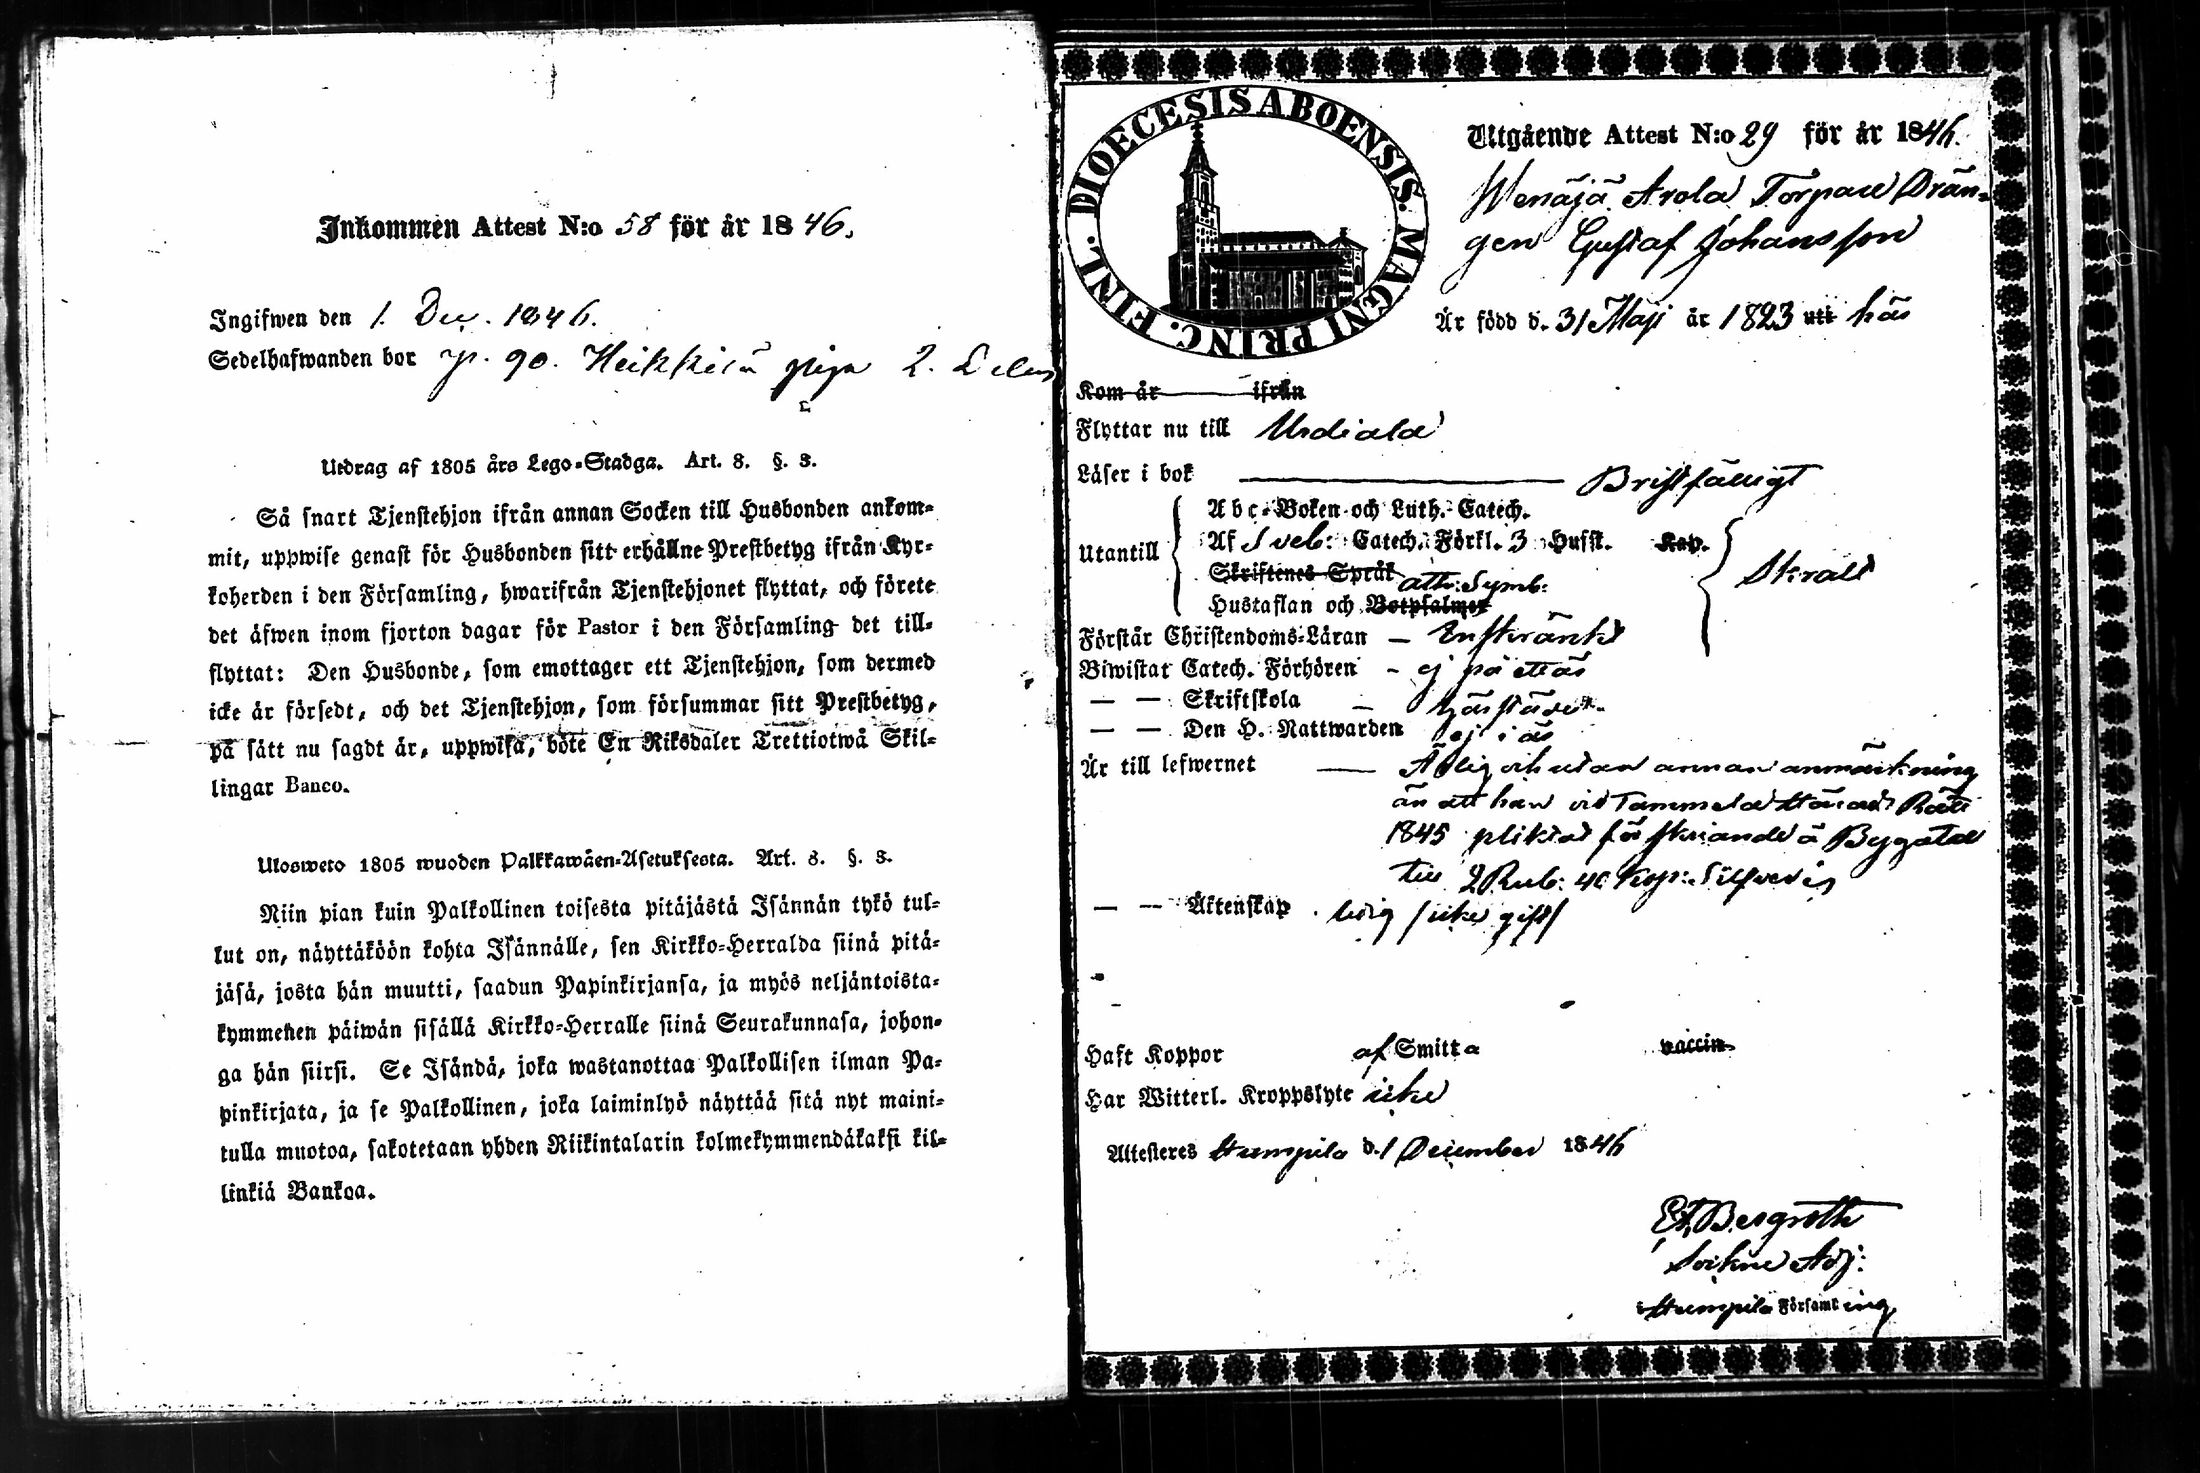 Inkommen Attest N:o 58 för år 1846.
Ingifwen den 1. Dec. 1846.
Sedelhafwanden bor p. 90. Heikkilä piga 2. Delen
Utdrag af 1805 års Lego-Stadga. Art. 8. §. 3.
Så snart Tjenstehjon ifrån annan Socken till Husbonden ankom-
mit, uppwise genast för Husbonden sitt erhållne Prestbetyg ifrån Kyr-
koherden i den Församling, hwarifrån Tjenstehjonet flyttat, och förete
det äfwen inom fjorton dagar för Pastor i den Församling det till-
flyttat: Den Husbonde, som emottager ett Tjenstehjon, som dermed
icke är försedt, och det Tjenstehjon, som försummar sitt Prestbetyg,
på sätt nu sagdt är, uppwisa, böte En Riksdaler Trettiotwå Skil-
lingar Banco.
Ulosweto 1805 wuoden Palkkawäen-Asetuksesta. Art. 8. §. 3.
Niin pian kuin Palkollinen toisesta pitäjästä Isännän tykö tul-
lut on, näyttäköön kohta Isännälle, sen Kirkko-Herralda siinä pitä-
jäsä, josta hän muutti, saadun Papinkirjansa, ja myös neljäntoista-
kymmenen päiwän sisällä Kirkko-Herralle siinä Seurakunnasa, johon-
ga hän siirsi. Se Isändä, joka wastanottaa Palkollisen ilman Pa-
pinkirjata, ja se Palkollinen, joka laiminlyö näyttää sitä nyt maini-
tulla muotoa, sakotetaan yhden Riikintalarin kolmekymmendäkaksi kil-
linkiä Bankoa.
DIOECESIS ABOENSIS. MAGNI PRINC. FINL.
Utgående Attest N:o 29 för år 1846.
Wenäjä Arola Torpare Drän-
gen Gustaf Johansson
Är född d. 31 Maji år 1823 uti här
Kom år ifrån
Flyttar nu till Urdiala
Läser i bok Bristfälligt
Utantill
Abc-Boken och Luth. Catech.
Af Sveb: Catech. Förkl. 3 Husst. Kap.
Skriftenes Språk ath: Symb:
Hustaflan och Botpsalmer
Skralt
Förstår Christendoms-Läran - Inskränkt
Biwistat Catech. Förhören - ej på ett år
— — Skriftskola -
— — Den H. Nattwarden ej i år
Är till lefwernet — Ärlig och utan annan anmärkning
än att han vid Tammela Härads Rätt
1845 pliktat för skriande å Bygata
till 2 Rub: 40 Kop: Silfver
— — Äktenskap ledig /icke gift/
Haft Koppor af Smitta vaccin.
Har Witterl. Kroppslyte icke
Attesteres Humpila d. 1 December 1846
Bergroth
Sockne Adj:
i Humpila Församling